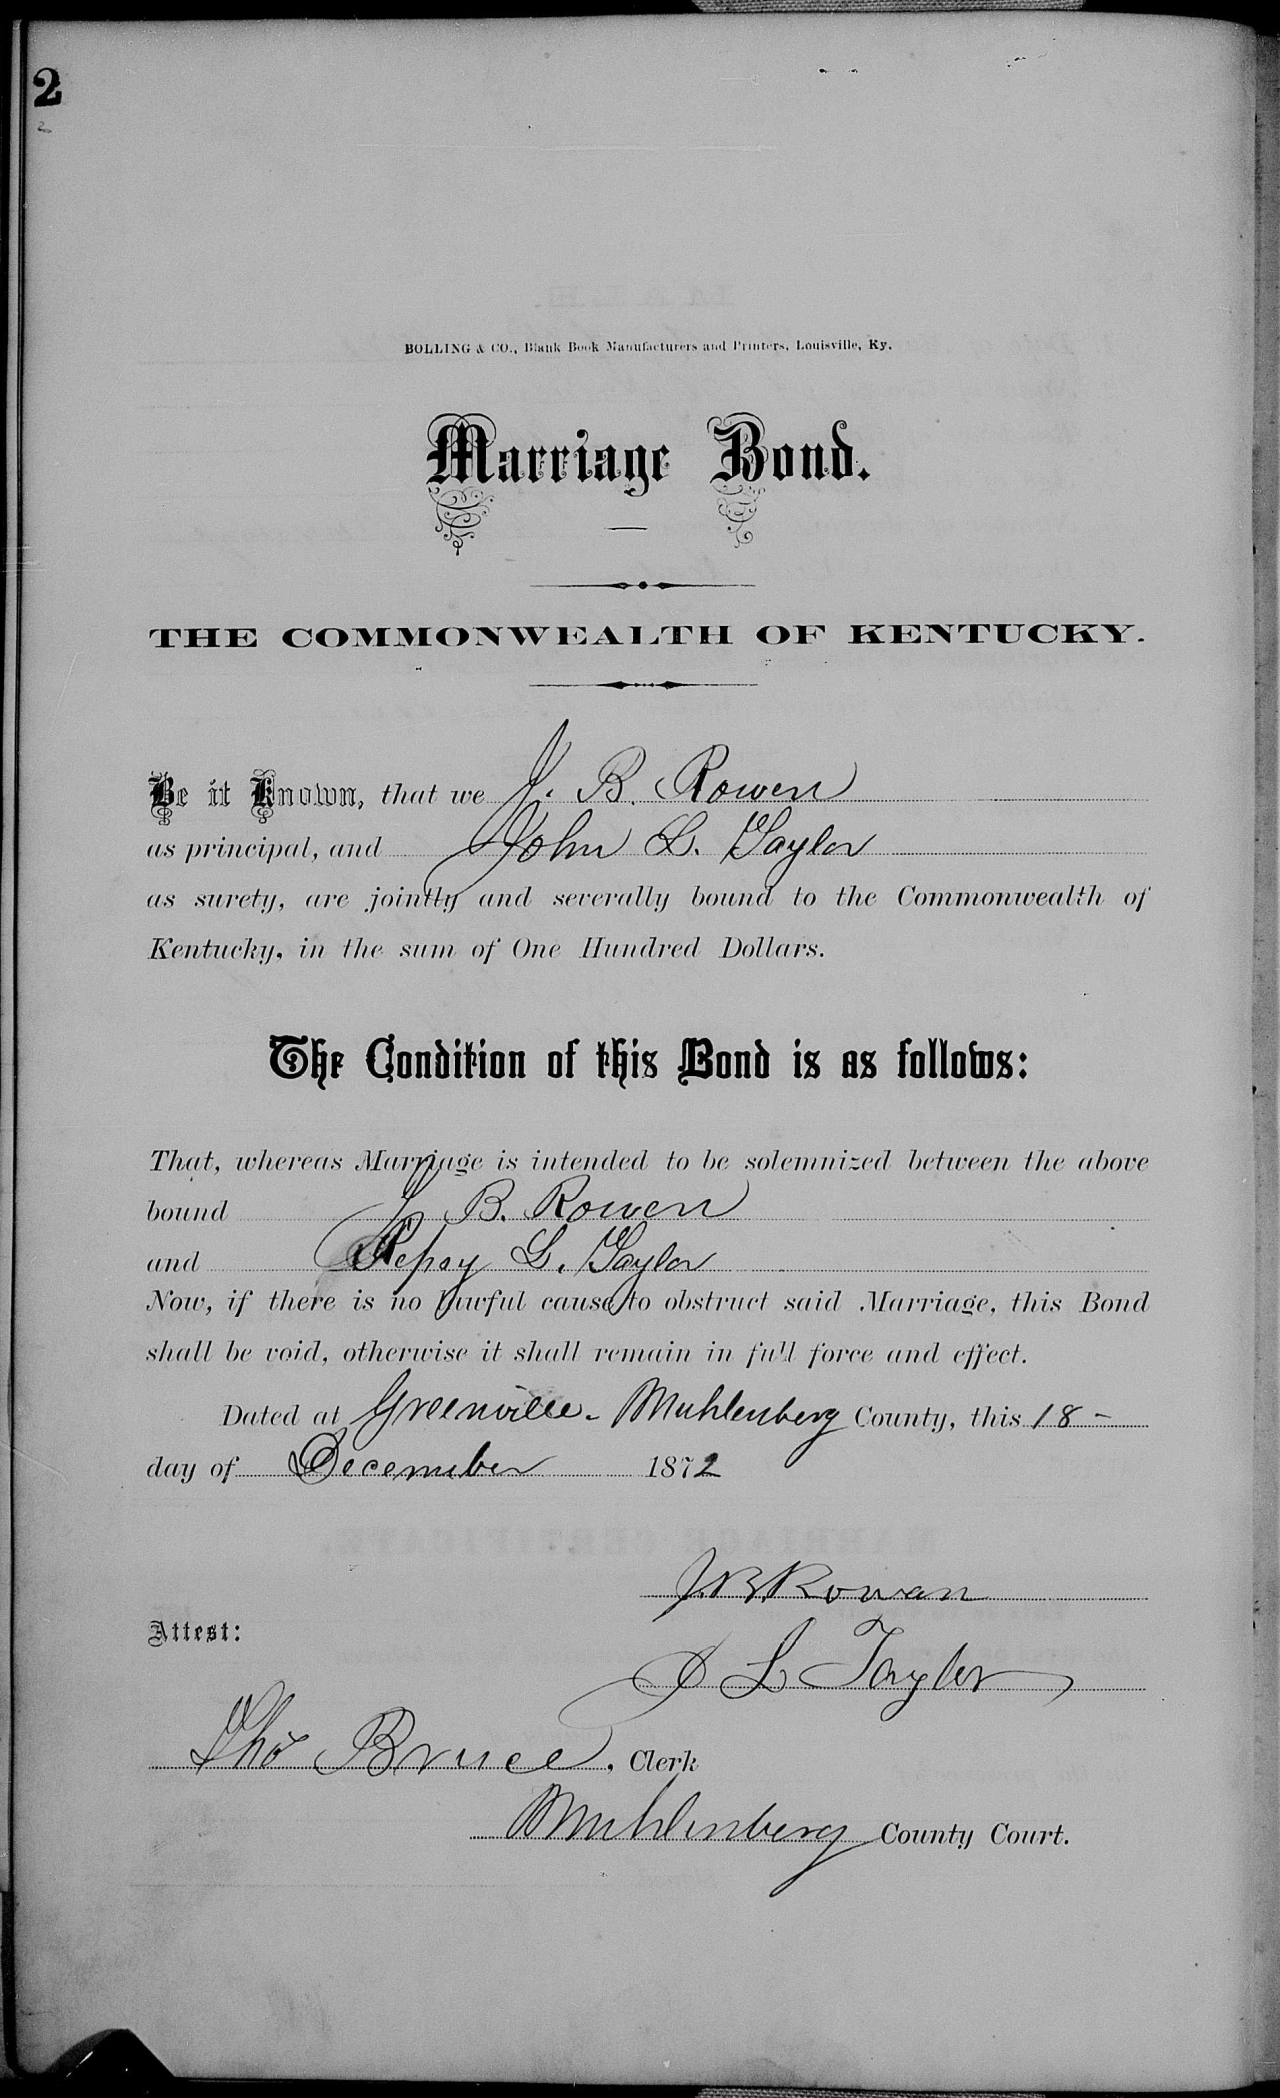 2
BOLLING & CO., Blank Book Manufacturers and Printers, Louisville, Ky.
Marriage Bond.
THE COMMONWEALTH OF KENTUCKY.
Be it Known, that we J. B. Rowen
as principal, and John L. Taylor
as surety, are jointly and severally bound to the Commonwealth of
Kentucky, in the sum of One Hundred Dollars.
The Condition of this Bond is as follows:
That, whereas Marriage is intended to be solemnized between the above
bound J. B. Rowen
and L. Taylor
Now, if there is no lawful cause to obstruct said Marriage, this Bond
shall be void, otherwise it shall remain in full force and effect.
Dated at Greenville - Muhlenberg County, this 18 -
day of December 1872
J. B. Rowan
Attest:
J L Taylor
Tho Bruce, Clerk
Muhlenberg County Court.